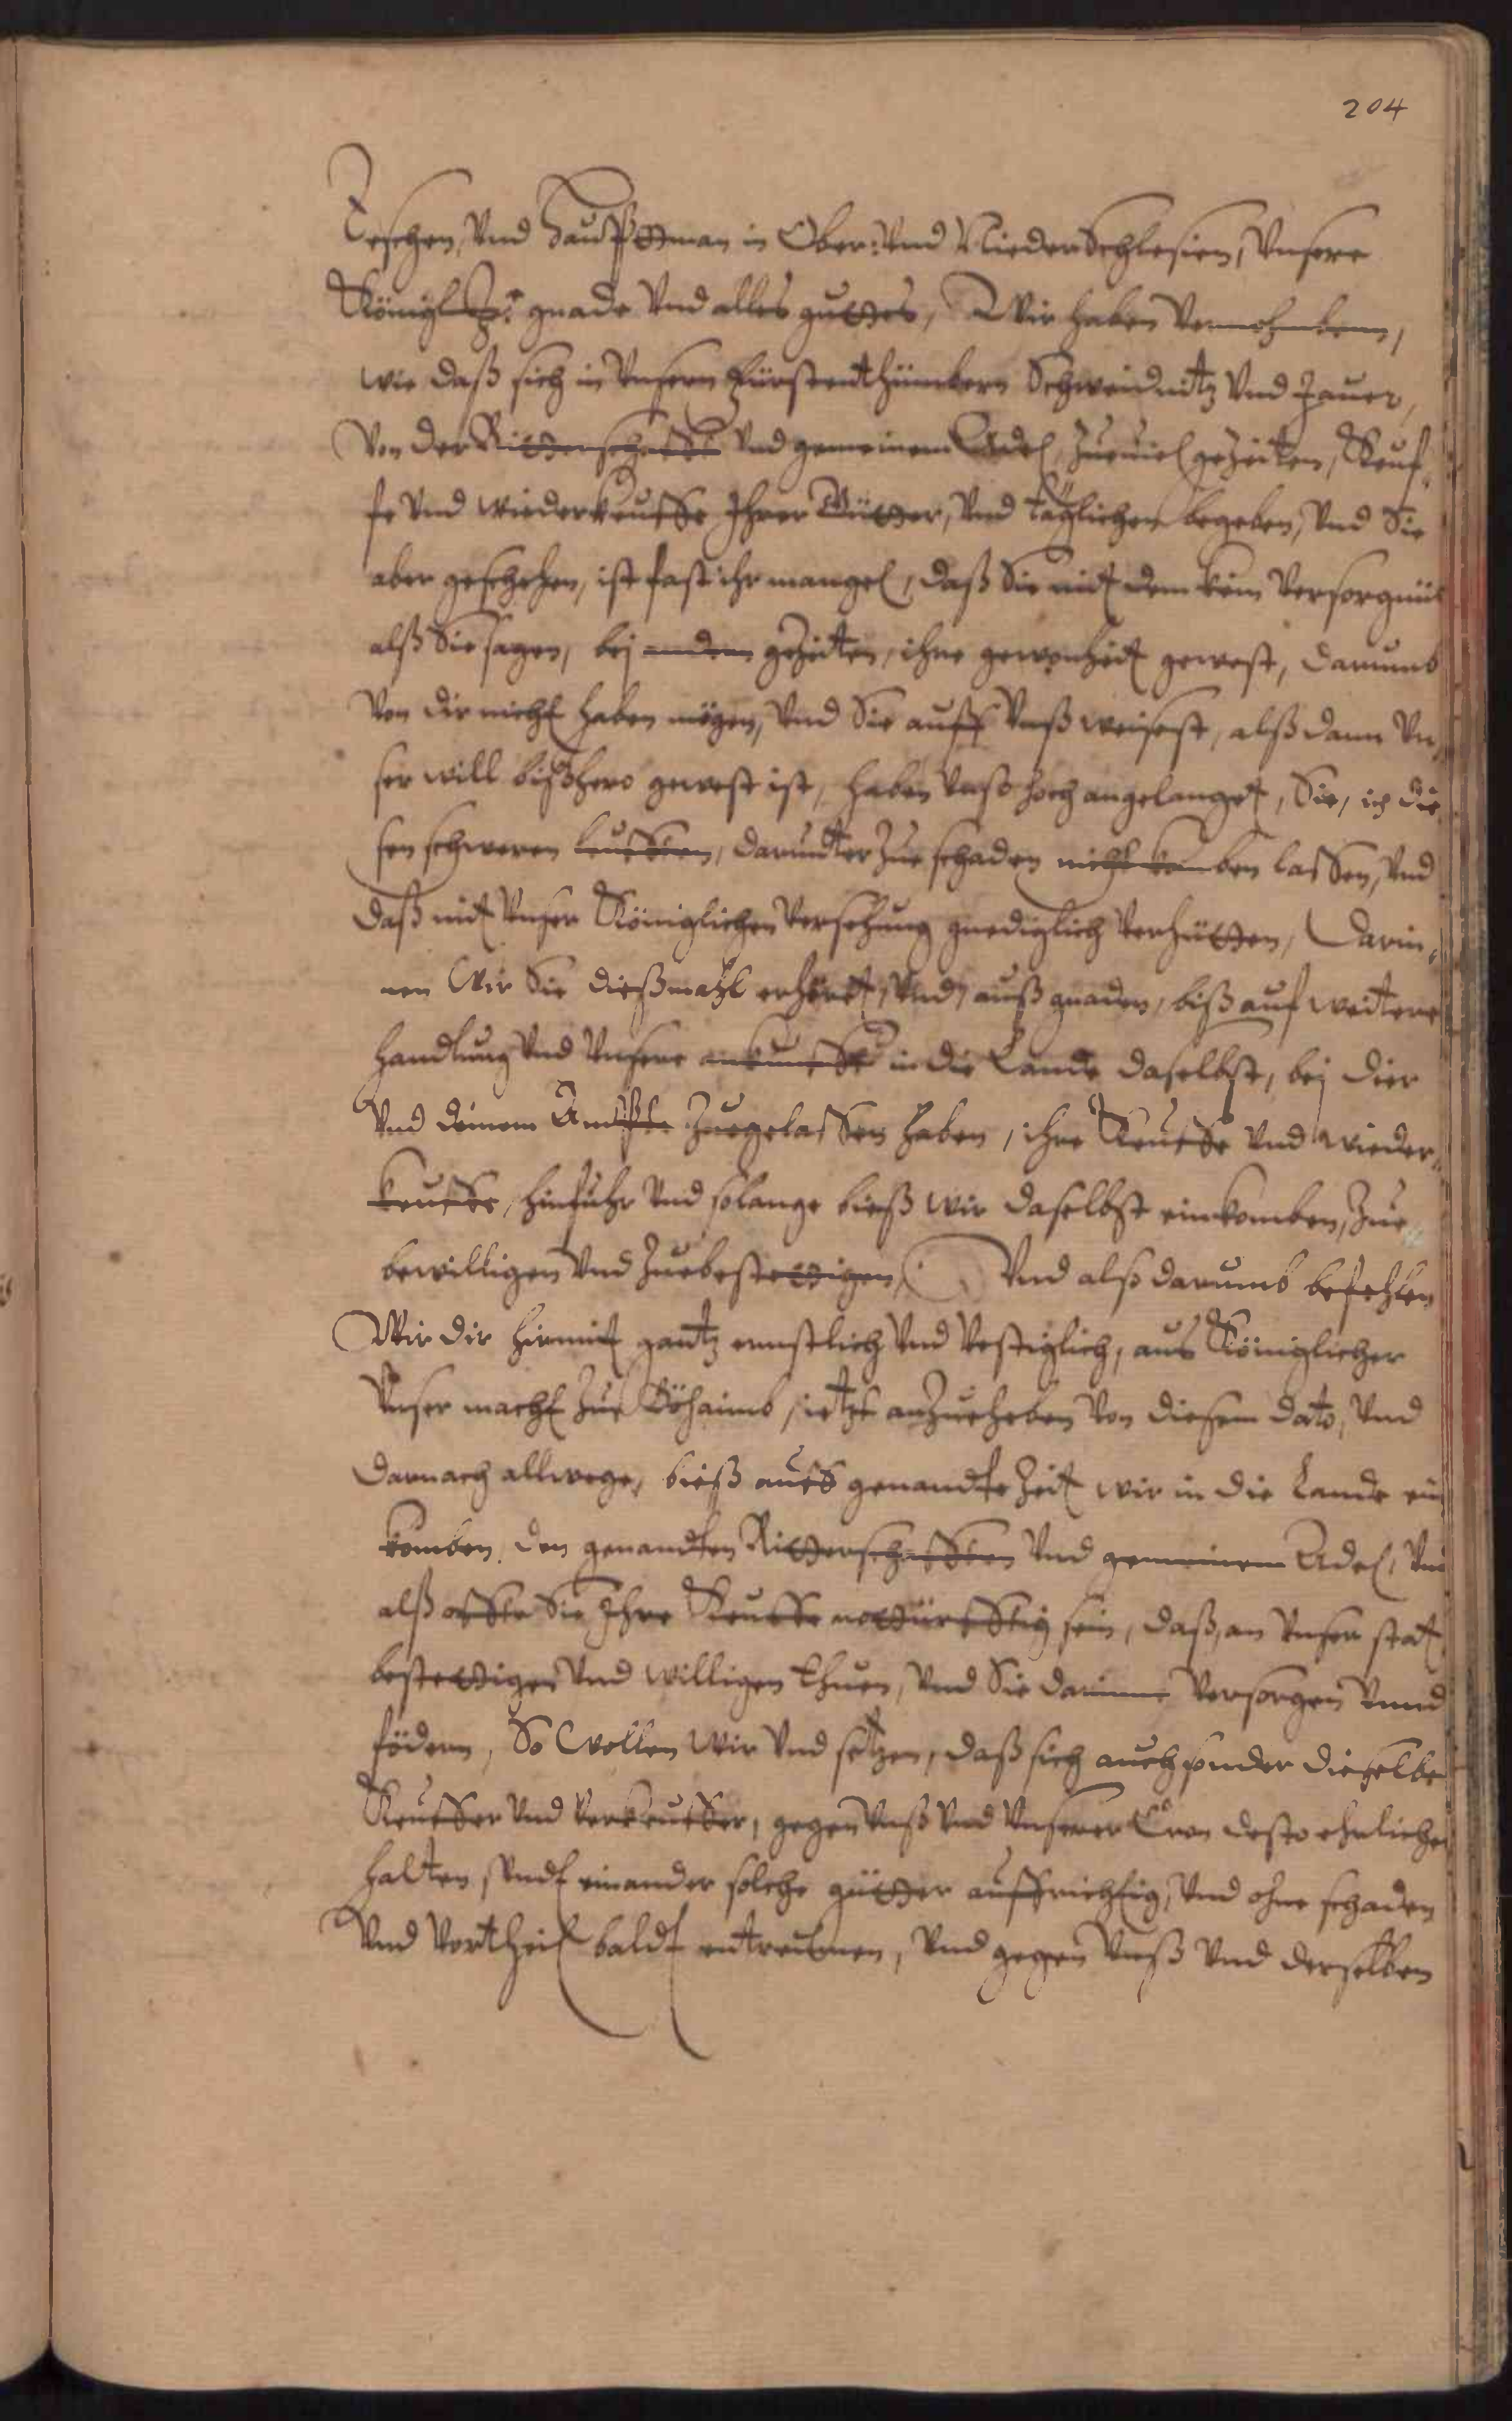 204
Teschen, Vnd Haubttman in Ober: Vnd NiederSchlesien, Vnsere
Königl: gnade Vnd alles guttes, Wir haben Vernohmben,
wie daß sich in Vnsern Fürstenthümbern Schweidnitz Vnd Jauer,
Von der Ritterschafft Vnd gemeinem Adel, Zueuiel geZeiten, Keuf„
fe Vnd wiederkeuffe Ihrer Gütter, Vnd täglichen begeben, Vnd Sie
aber geschehen, ist fast ihr mangel, daß Sie mit dem kein Versorgnüs
alß Sie sagen, bej andern geZeiten, ihne gewonheit gewest, darumb
Von dir nicht haben mögen, Vnd Sie auff Vnß weisest, alß dann Vn„
ser will bißhero gewest ist, haben Vnß hoch angelanget, Sie, in die„
sen schweren leufften, darundter Zue schaden nicht komben lassen, Vnd
daß mit Vnser Königlichen Versehung gnediglich Verhütten, Darin„
nen Wir Sie dießmahl erhöret, Vnd auß gnaden, biß auf weitere
handlung Vnd Vnsere ankunfft in die Lande daselbst, bej dier
Vnd deinem Ambte Zuegelassen haben, ihre Keuffe Vnd wieder„
keuffe, hinfuhr Vnd solange bieß wir daselbst einkomben, Zue
bewilligen Vnd Zuebestettigen, Vnd also darumb befehlen
Wir dir hiermit gantz ernstlich Vnd Vestiglich, aus Königlicher
Vnser macht Zue Böhaimb, ietzt anZueheben Von diesem dato, Vnd
darnach allwege, bieß auf genandte Zeit wir in die Lande ein
komben, den genandten Ritterschafften Vnd gemeinem Adel, Vnd
alß offte Sie Ihre Keuffe nottürfftig sein, daß, an Vnser stat
bestettigen Vnd willigen thuen, Vnd Sie darinne Versorgen Vnnd
födern, So Wollen Wir Vnd setzen, daß sich auch sonder dieselbe
Keuffer Vnd Verkeuffer, gegen Vnß Vnd Vnserer Cron desto ehrlicher
halten, Vndt einander solche gütter auffrichtig, Vnd ohne schaden
Vnd Vortheil baldt entreumen, Vnd gegen Vnß Vnd derselben